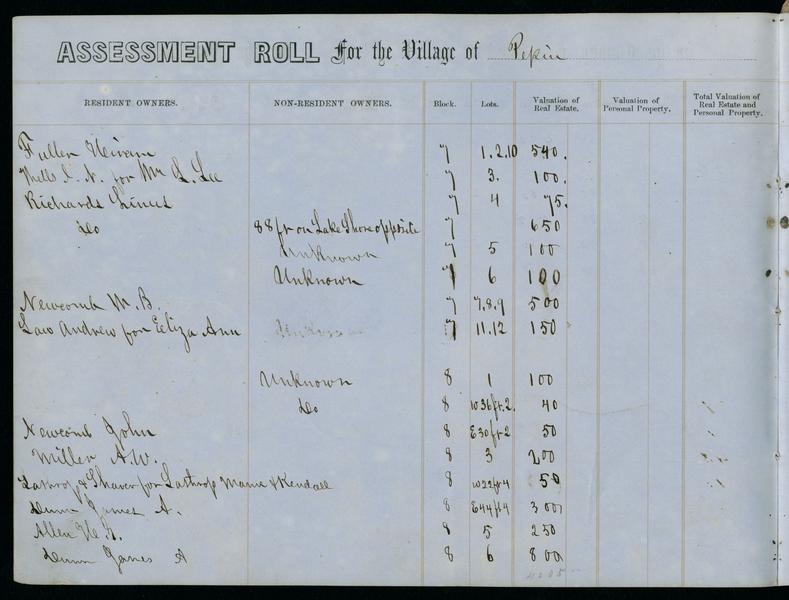 ASSESSMENT ROLL For the Village of Pepin
RESIDENT OWNERS. NON-RESIDENT OWNERS. Block. Lots. Valuation of Real Estate. Valuation of Personal Property. Total Valuation of Real Estate and Personal Property.
Fuller Heiram 7 1.2.10 540.
Wells I. N. for Mr S. Lee 7 3. 100.
Richards Linus 7 4 75.
Do 88 fr on Lake Shore opposite 7 650
Unknown 7 5 100
Unknown 7 6 100
Newcomb M. B. 7 7.8.9 500
Law Andrew for Eeliza Ann 7 11.12 150
Unknown 8 1 100
Do 8 W36ft.2. 40
Newcomb John 8 E30fr2 50
Miller A.W. 8 3 200
Lathrop & Shaver for Lathrop Mann & Kendall 8 W22fr4 50
Dunn James A. 8 E44ft4 300
Allen H. A. 8 5 250
Dunn James A 8 6 800